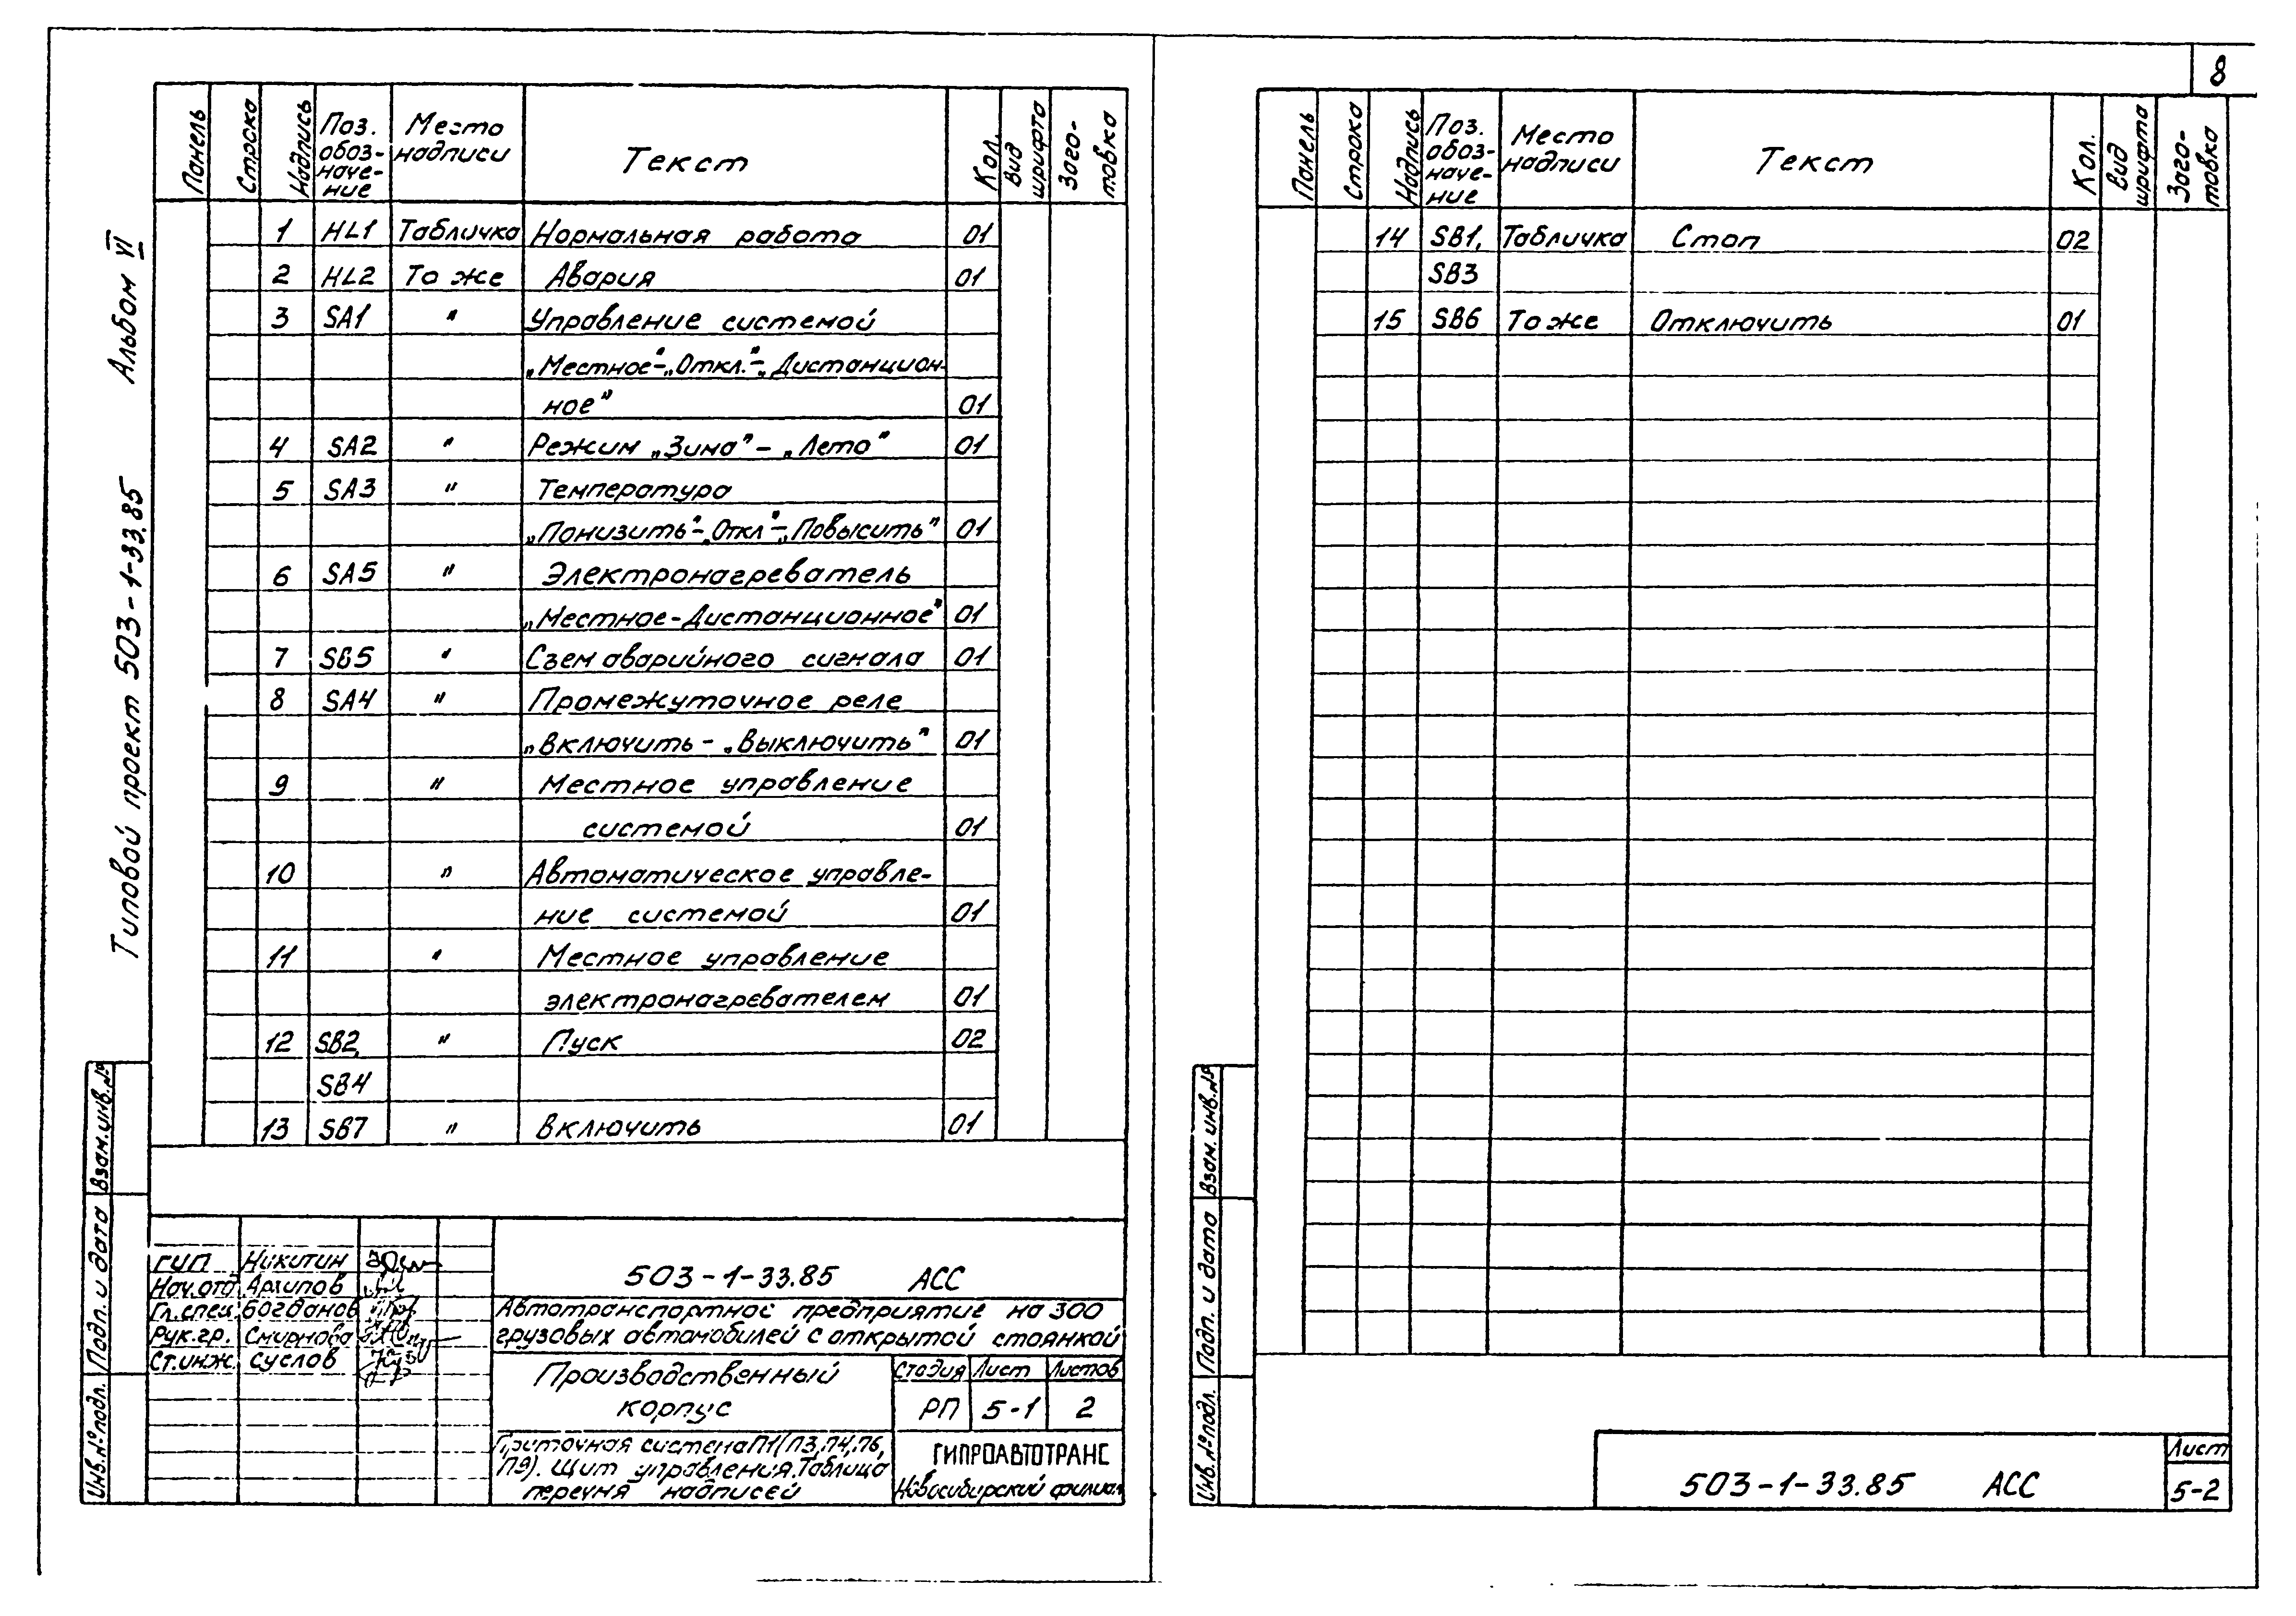 8
Альбом VI
Типовой проект 503-1-33.85
Панель
Строка
Надпись
Поз. обоз-
наче-
ние
Место
надписи
Текст
Кол.
Вид
шрифта
Заго-
товка
1 HL1 Табличка Нормальная работа 01
2 HL2 То же Авария 01
3 SA1 " Управление системой
„Местное"-„Откл."-„Дистанцион-
ное" 01
4 SA2 " Режим „Зима" - „Лето" 01
5 SA3 " Температура
„Понизить"-„Откл"-„Повысить" 01
6 SA5 " Электронагреватель
„Местное-Дистанционное" 01
7 SB5 " Съем аварийного сигнала 01
8 SA4 " Промежуточное реле
„Включить - „Выключить" 01
9 " Местное управление
системой 01
10 " Автоматическое управле-
ние системой 01
11 " Местное управление
электронагревателем 01
12 SB2, " Пуск 02
SB4
13 SB7 " Включить 01
Взам.инв.№
Подп. и дата
Инв.№подл.
ГИП Никитин
Нач.отд Архипов
Гл.спец. Богданов
Рук.гр. Смирнова
Ст.инж. Суслов
503-1-33.85 АСС
Автотранспортное предприятие на 300
грузовых автомобилей с открытой стоянкой
Производственный
корпус
Стадия Лист Листов
РП 5-1 2
Приточная система П1(П3,П4,П6,
П9). Щит управления. Таблица
перечня надписей
ГИПРОАВТОТРАНС
Новосибирский филиал
Панель
Строка
Надпись
Поз.
обоз-
наче-
ние
Место
надписи
Текст
Кол.
Вид
шрифта
Заго-
товка
14 SB1, Табличка Стоп 02
SB3
15 SB6 То же Отключить 01
Взам.инв.№
Подп. и дата
Инв.№подл.
503-1-33.85 АСС
Лист
5-2